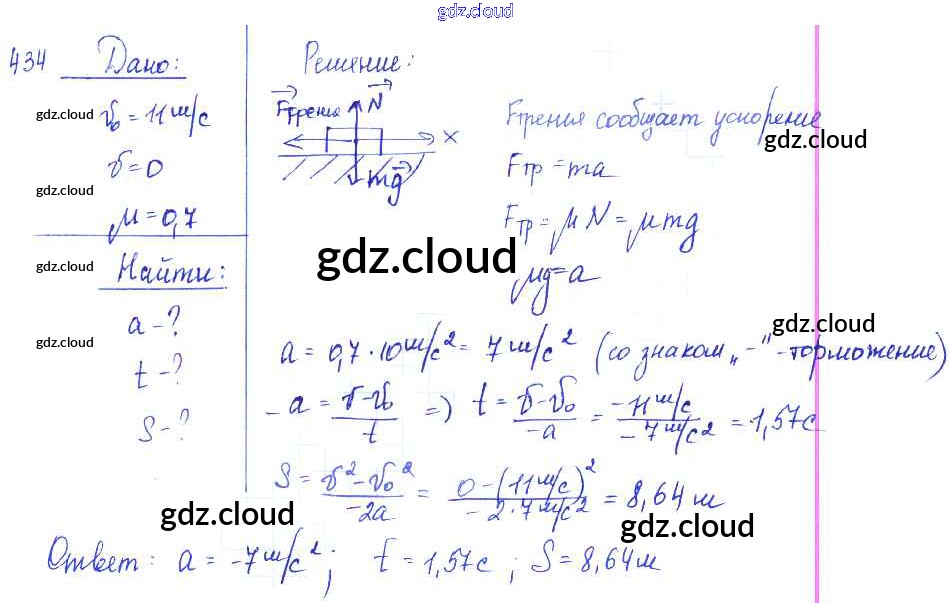 gdz.cloud
434 Дано:
gdz.cloud
v₀ = 11 м/с
v = 0
gdz.cloud
μ = 0,7
gdz.cloud
Найти:
a - ?
gdz.cloud
t - ?
S - ?
Решение:
Fтрения N
X
mg
Fтрения сообщает ускорение
gdz.cloud
Fтр = ma
Fтр = μN = μmg
gdz.cloud
μg = a
gdz.cloud
a = 0,7 · 10 м/с² = 7 м/с² (со знаком „-" - торможение)
-a = (v - v₀)/t => t = (v - v₀)/(-a) = (-11 м/с)/(-7 м/с²) = 1,57 с
S = (v² - v₀²)/(-2a) = (0 - (11 м/с)²)/(-2 · 7 м/с²) = 8,64 м
gdz.cloud gdz.cloud
Ответ: a = -7 м/с²; t = 1,57 с; S = 8,64 м